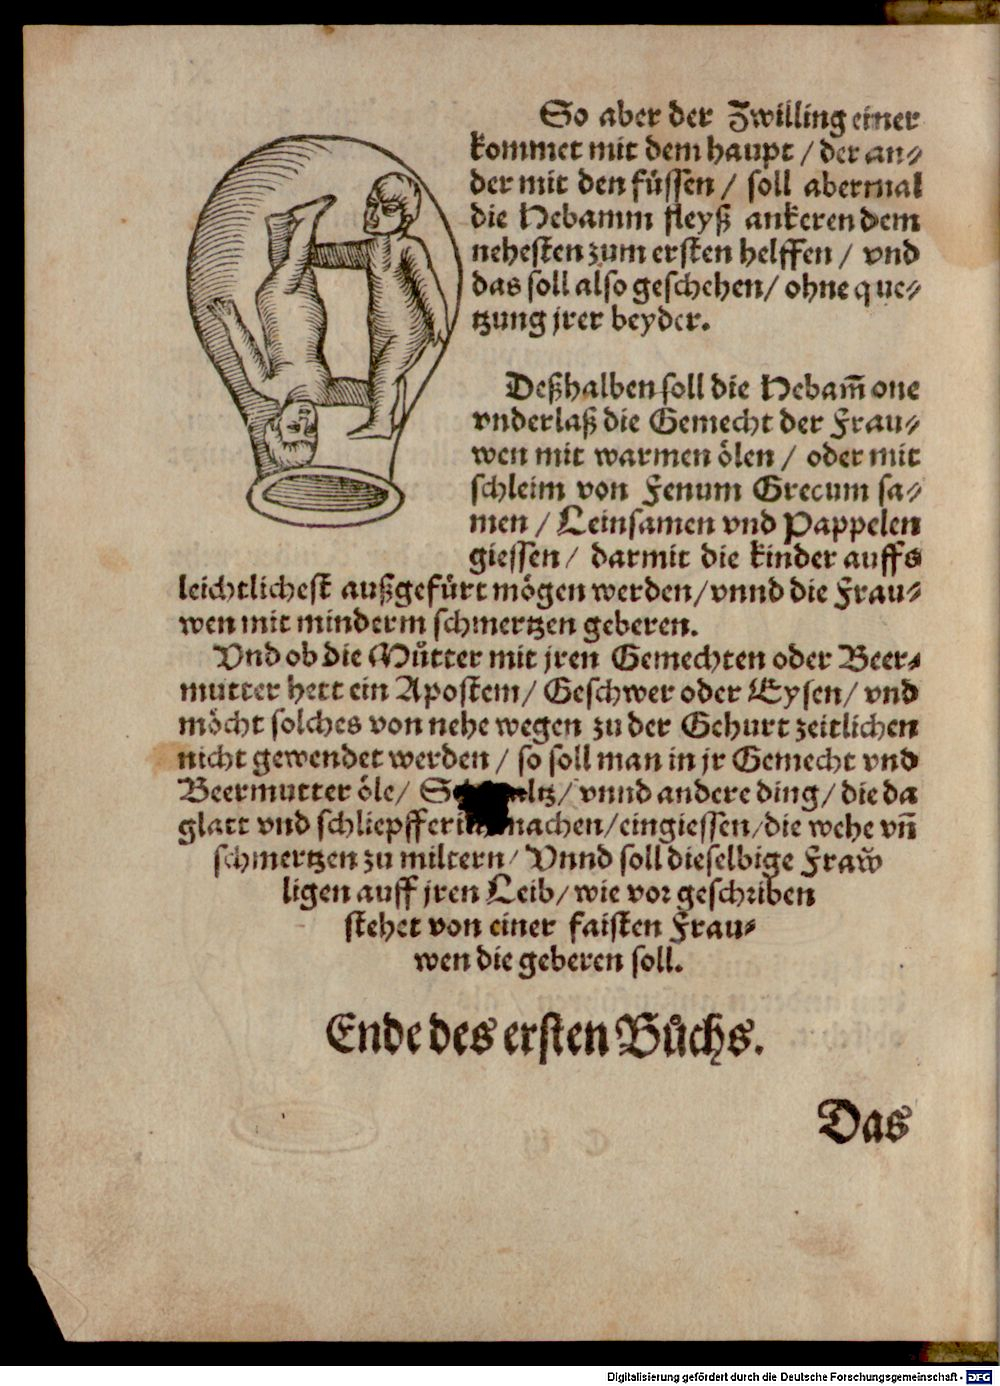 So aber der Zwilling einer
kommet mit dem haupt / der an⸗
der mit den füssen / soll abermal
die Hebamm fleyß ankeren dem
nehesten zum ersten helffen / vnd
das soll also geschehen / ohne que⸗
tzung jrer beyder.
Deßhalben soll die Hebam̃ one
vnderlaß die Gemecht der Frau⸗
wen mit warmen ölen / oder mit
schleim von Fenum Grecum sa⸗
men / Leinsamen vnd Pappelen
giessen / darmit die kinder auffs
leichtlichest außgefürt mögen werden / vnnd die Frau⸗
wen mit minderm schmertzen geberen.
Vnd ob die Můtter mit jren Gemechten oder Beer⸗
mutter hett ein Apostem / Geschwer oder Eysen / vnd
möcht solches von nehe wegen zu der Gehurt zeitlichen
nicht gewendet werden / so soll man in jr Gemecht vnd
Beermutter öle / vnnd andere ding / die da
glatt vnd machen / eingiessen / die wehe vñ
schmertzen zu miltern / Vnnd soll dieselbige Fraw̆
ligen auff jren Leib / wie vor geschriben
stehet von einer faisten Frau⸗
wen die geberen soll.
Ende des ersten Bůchs.
Das
Digitalisierung gefördert durch die Deutsche Forschungsgemeinschaft - DFG